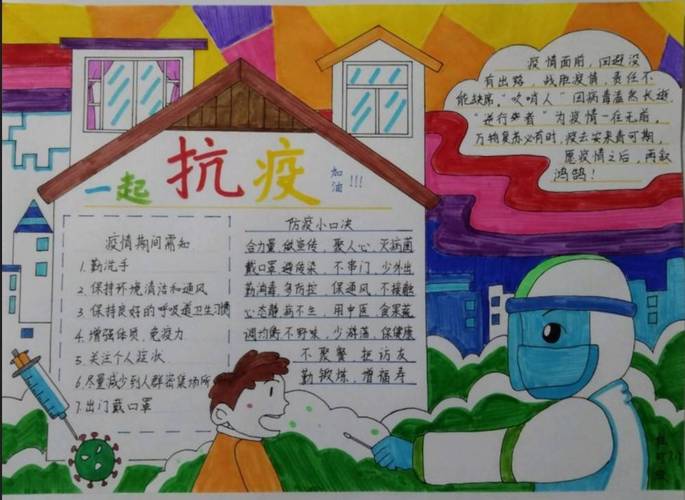 一起抗疫
加油!!!
疫情面前,回避没
有出路,战胜疫情,责任不
能缺席,"吹哨人"因病毒溘然长逝
"逆行者"为疫情一往无前,
万物复苏必有时,疫去安来春可期,
愿疫情之后,再叙
鸿鹄!
疫情期间需知
1.勤洗手
2.保持环境清洁和通风
3.保持良好的呼吸道卫生习惯
4.增强体质,免疫力
5.关注个人症状
6.尽量减少到人群密集场所
7.出门戴口罩
防疫小口决
合力量 做宣传,聚人心,灭病菌
戴口罩 避传染,不串门,少外出
勤消毒 多防护 保通风,不接触
心态静 病不生,用中医,食果蔬
调均衡 不野味,少游荡,保健康
不聚餐 拒访友
勤锻炼,增福寿